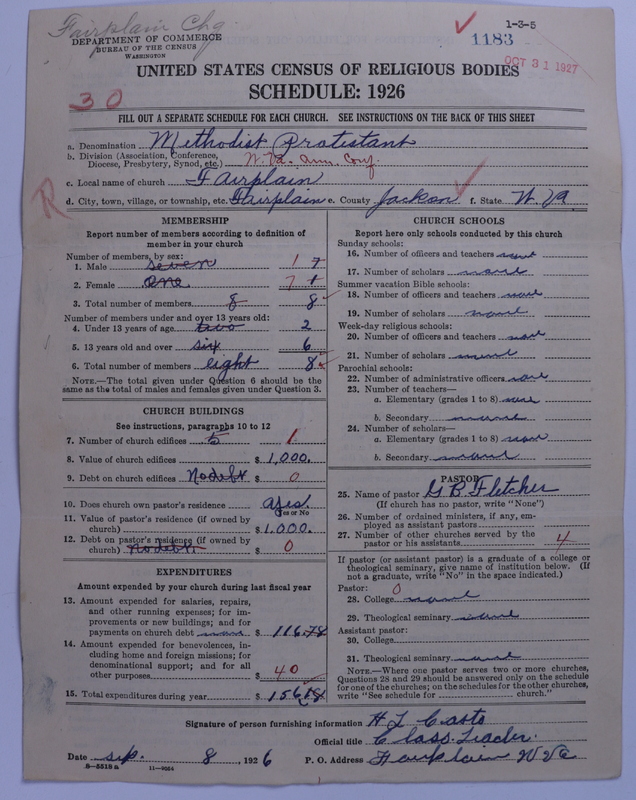 Fairplain Chg.
1-3-5
DEPARTMENT OF COMMERCE
BUREAU OF THE CENSUS
WASHINGTON
1183
OCT 31 1927
UNITED STATES CENSUS OF RELIGIOUS BODIES
SCHEDULE: 1926
30
FILL OUT A SEPARATE SCHEDULE FOR EACH CHURCH. SEE INSTRUCTIONS ON THE BACK OF THIS SHEET
a. Denomination Methodist Protestant
b. Division (Association, Conference, Diocese, Presbytery, Synod, etc.) W. Va. Ann. Conf.
c. Local name of church Fairplain
R
d. City, town, village, or township, etc. Fairplain e. County Jackson f. State W. Va.
MEMBERSHIP
Report number of members according to definition of
member in your church
Number of members, by sex:
1. Male seven 1 7
2. Female one 7 1
3. Total number of members 8 8
Number of members under and over 13 years old:
4. Under 13 years of age two 2
5. 13 years old and over six 6
6. Total number of members eight 8
NOTE.—The total given under Question 6 should be
same as the total of males and females given under Question 3.
CHURCH BUILDINGS
See instructions, paragraphs 10 to 12
7. Number of church edifices 5 1
8. Value of church edifices $ 1,000.
9. Debt on church edifices No debt $ 0
10. Does church own pastor's residence yes.
Yes or No
11. Value of pastor's residence (if owned by
church) $ 1.000.
12. Debt on pastor's residence (if owned by
church) no debt $ 0
EXPENDITURES
Amount expended by your church during last fiscal year
13. Amount expended for salaries, repairs,
and other running expenses; for im-
provements or new buildings; and for
payments on church debt $ 116.78
14. Amount expended for benevolences, in-
cluding home and foreign missions; for
denominational support; and for all
other purposes $ 40
15. Total expenditures during year $
CHURCH SCHOOLS
Report here only schools conducted by this church
Sunday schools:
16. Number of officers and teachers
17. Number of scholars none
Summer vacation Bible schools:
18. Number of officers and teachers none
19. Number of scholars none
Week-day religious schools:
20. Number of officers and teachers none
21. Number of scholars none
Parochial schools:
22. Number of administrative officers none
23. Number of teachers—
a. Elementary (grades 1 to 8) none
b. Secondary none
24. Number of scholars—
a. Elementary (grades 1 to 8) none
b. Secondary none
PASTOR
25. Name of pastor G B Fletcher
(If church has no pastor, write "None")
26. Number of ordained ministers, if any, em-
ployed as assistant pastors
27. Number of other churches served by the
pastor or his assistants 4
If pastor (or assistant pastor) is a graduate of a college or
theological seminary, give name of institution below. (If
not a graduate, write "No" in the space indicated.)
Pastor: 0
28. College none
29. Theological seminary none
Assistant pastor:
30. College
31. Theological seminary none
NOTE.—Where one pastor serves two or more churches,
Questions 28 and 29 should be answered only on the schedule
for one of the churches; on the schedules for the other churches,
write "See schedule for church."
Signature of person furnishing information H L Casto
Official title Class Leader
Date Sep. 8, 1926 P. O. Address Fairplain W Va
8—5518 a 11—9054